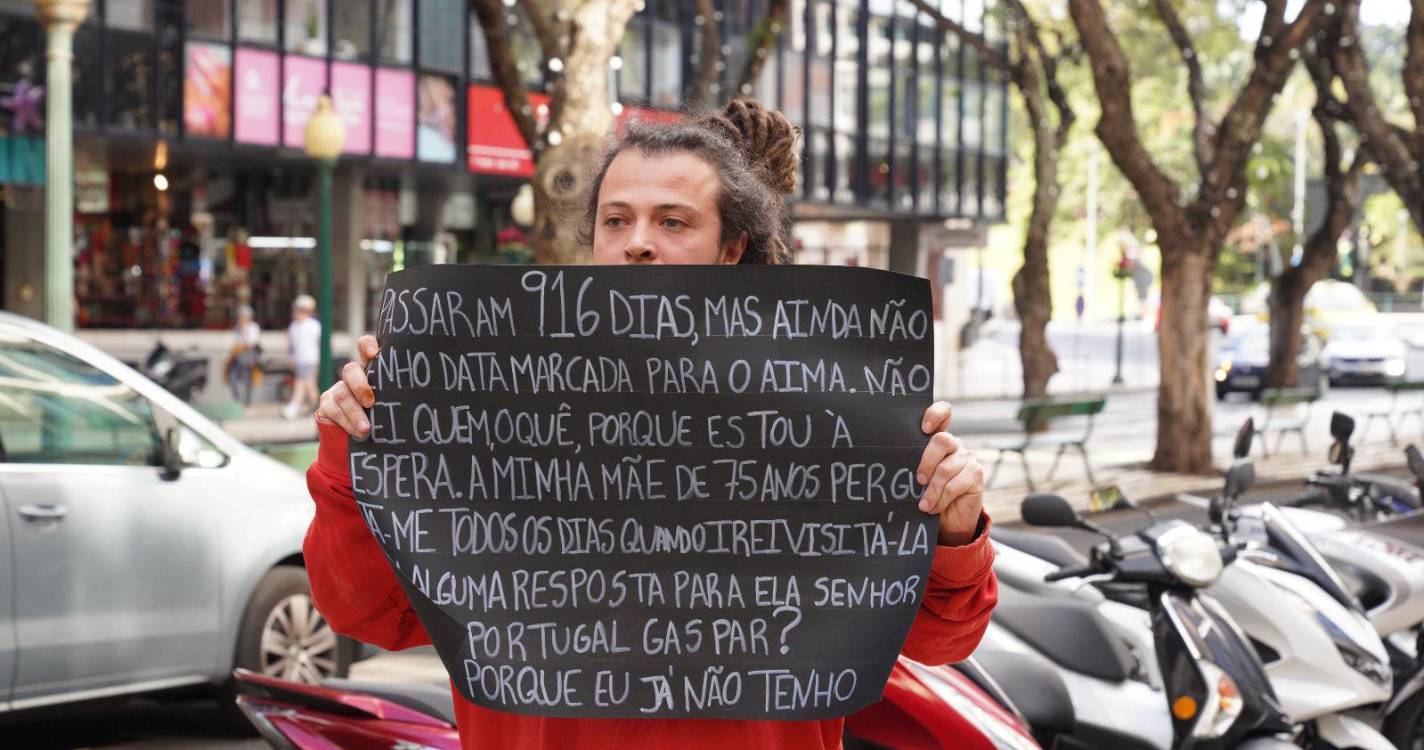 PASSARAM 916 DIAS, MAS AINDA NÃO
ENHO DATA MARCADA PARA O AIMA. NÃO
EI QUEM, O QUÊ, PORQUE ESTOU À
ESPERA. A MINHA MÃE DE 75 ANOS PERGU
TA-ME TODOS OS DIAS QUANDO IREI VISITÁ-LA
ALGUMA RESPOSTA PARA ELA SENHOR
PORTUGAL GASPAR?
PORQUE EU JÁ NÃO TENHO